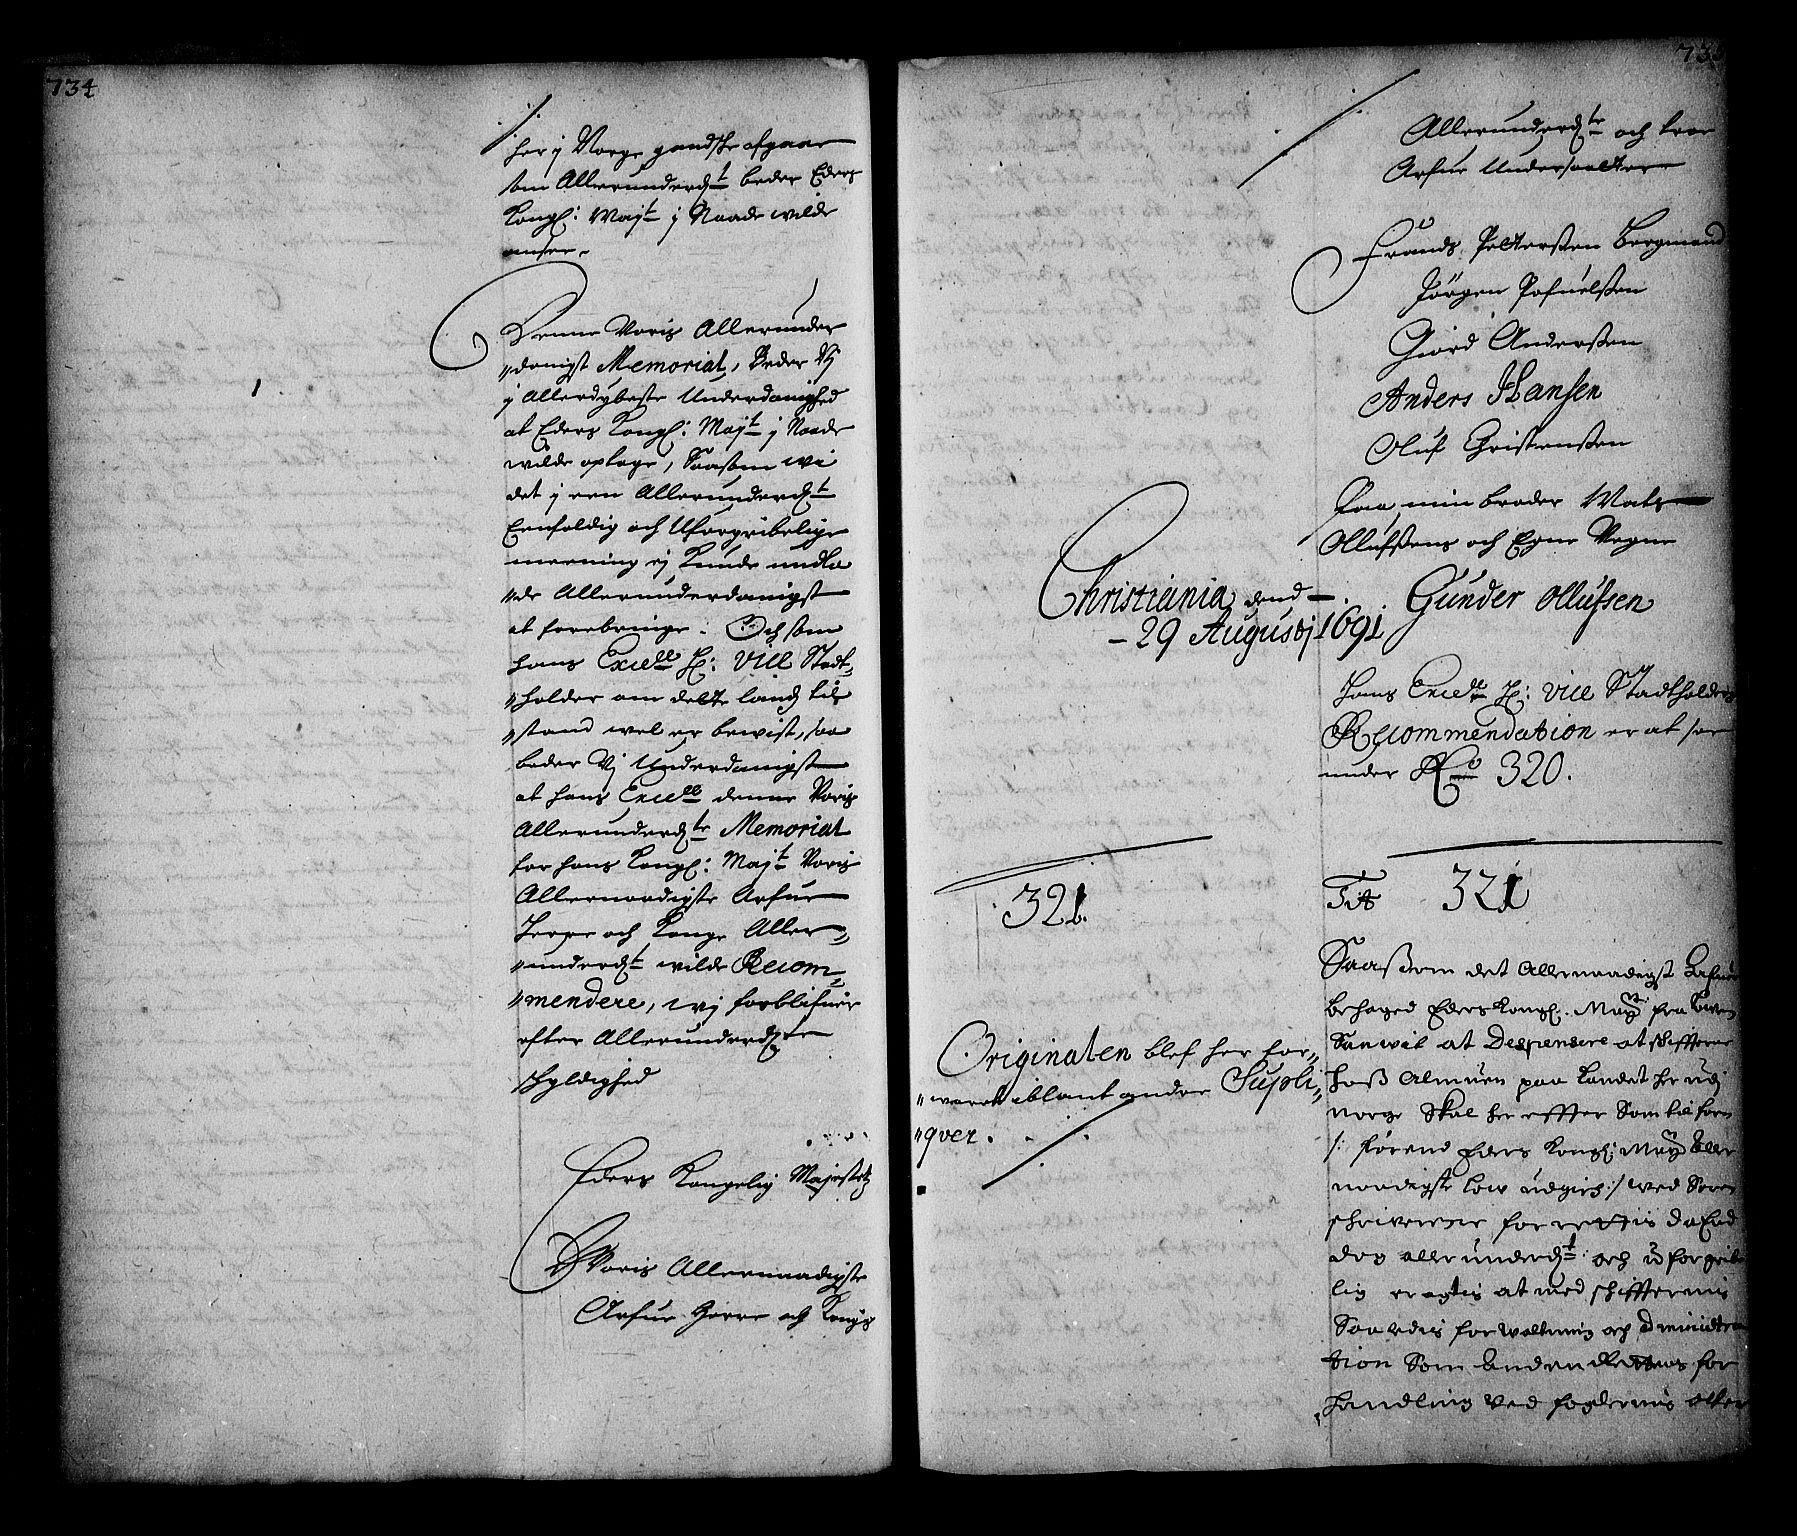 734
her j Norge gandske afgaar
som Allerunderd:t beder Eders
Kongl: May:t j Naade wilde
ansee.
Denne Voris Allerunder
"danigst Memorial, Beder Vj
j Allerdybeste Underdanighed
at Eders Kongl: May:t j Naade
wilde optage, Saasom wi
det j een Allerunderd:t
Eenfoldig och Uforgribelige
meening ej Kunde undla
"de Allerunderdanigst
at forebringe. Och som
hans Excell: H: Vice Stadt"
"holder om dette landz til
"stand wel er bewist, saa
beder Vj Underdanigst
at hans Excell: denne Voris
Allerunderd:te Memorial
for hans Kongl: May:t Voris
Allernaadigste Arfue
Herre och Konge Aller"
"underd:t wilde Recom"
"mendere, wj forblifuer
efter Allerunderd:te
Skyldighed
Eders Kongelig Majestetz
Woris Allernaadigste
Arfue Herre och Kongis
735
Allerunderd:te och troe
Arfue Undersaatter
Frands Pettersen Bergmand
Jörgen Pofuelsen
Giord Andersen
Anders Hansen
Oluf Christensen
Paa min broder Mats
Ollufsens och Egne Vegne
Christiania dend
29 Augustj 1691
Gunder Ollufsen
Hans Excell: H: Vice Stadtholders
Recommendation er at see
under No 320.
321.
Tit 321
Originalen blef her for"
"waret iblant andre Supli"
"qver.
Saasom det Allernaadigst hafuer
behaged Eders Kongl. May:t fra
at Despensere at skifterne
hoss Almuen paa Landet her udj
Norge Skal her effter Som til forn
/: förend Eders Kongl: May:t Aller
naadigste Low udgick :/ wed Soren
skriverne forrettis da
dog allerunderd:t och uforgribe
lig eragtis at med skiffternis
Saavelsom forwaltning och Administra
tion Som Anden Rettens for
handling ved fogdernis